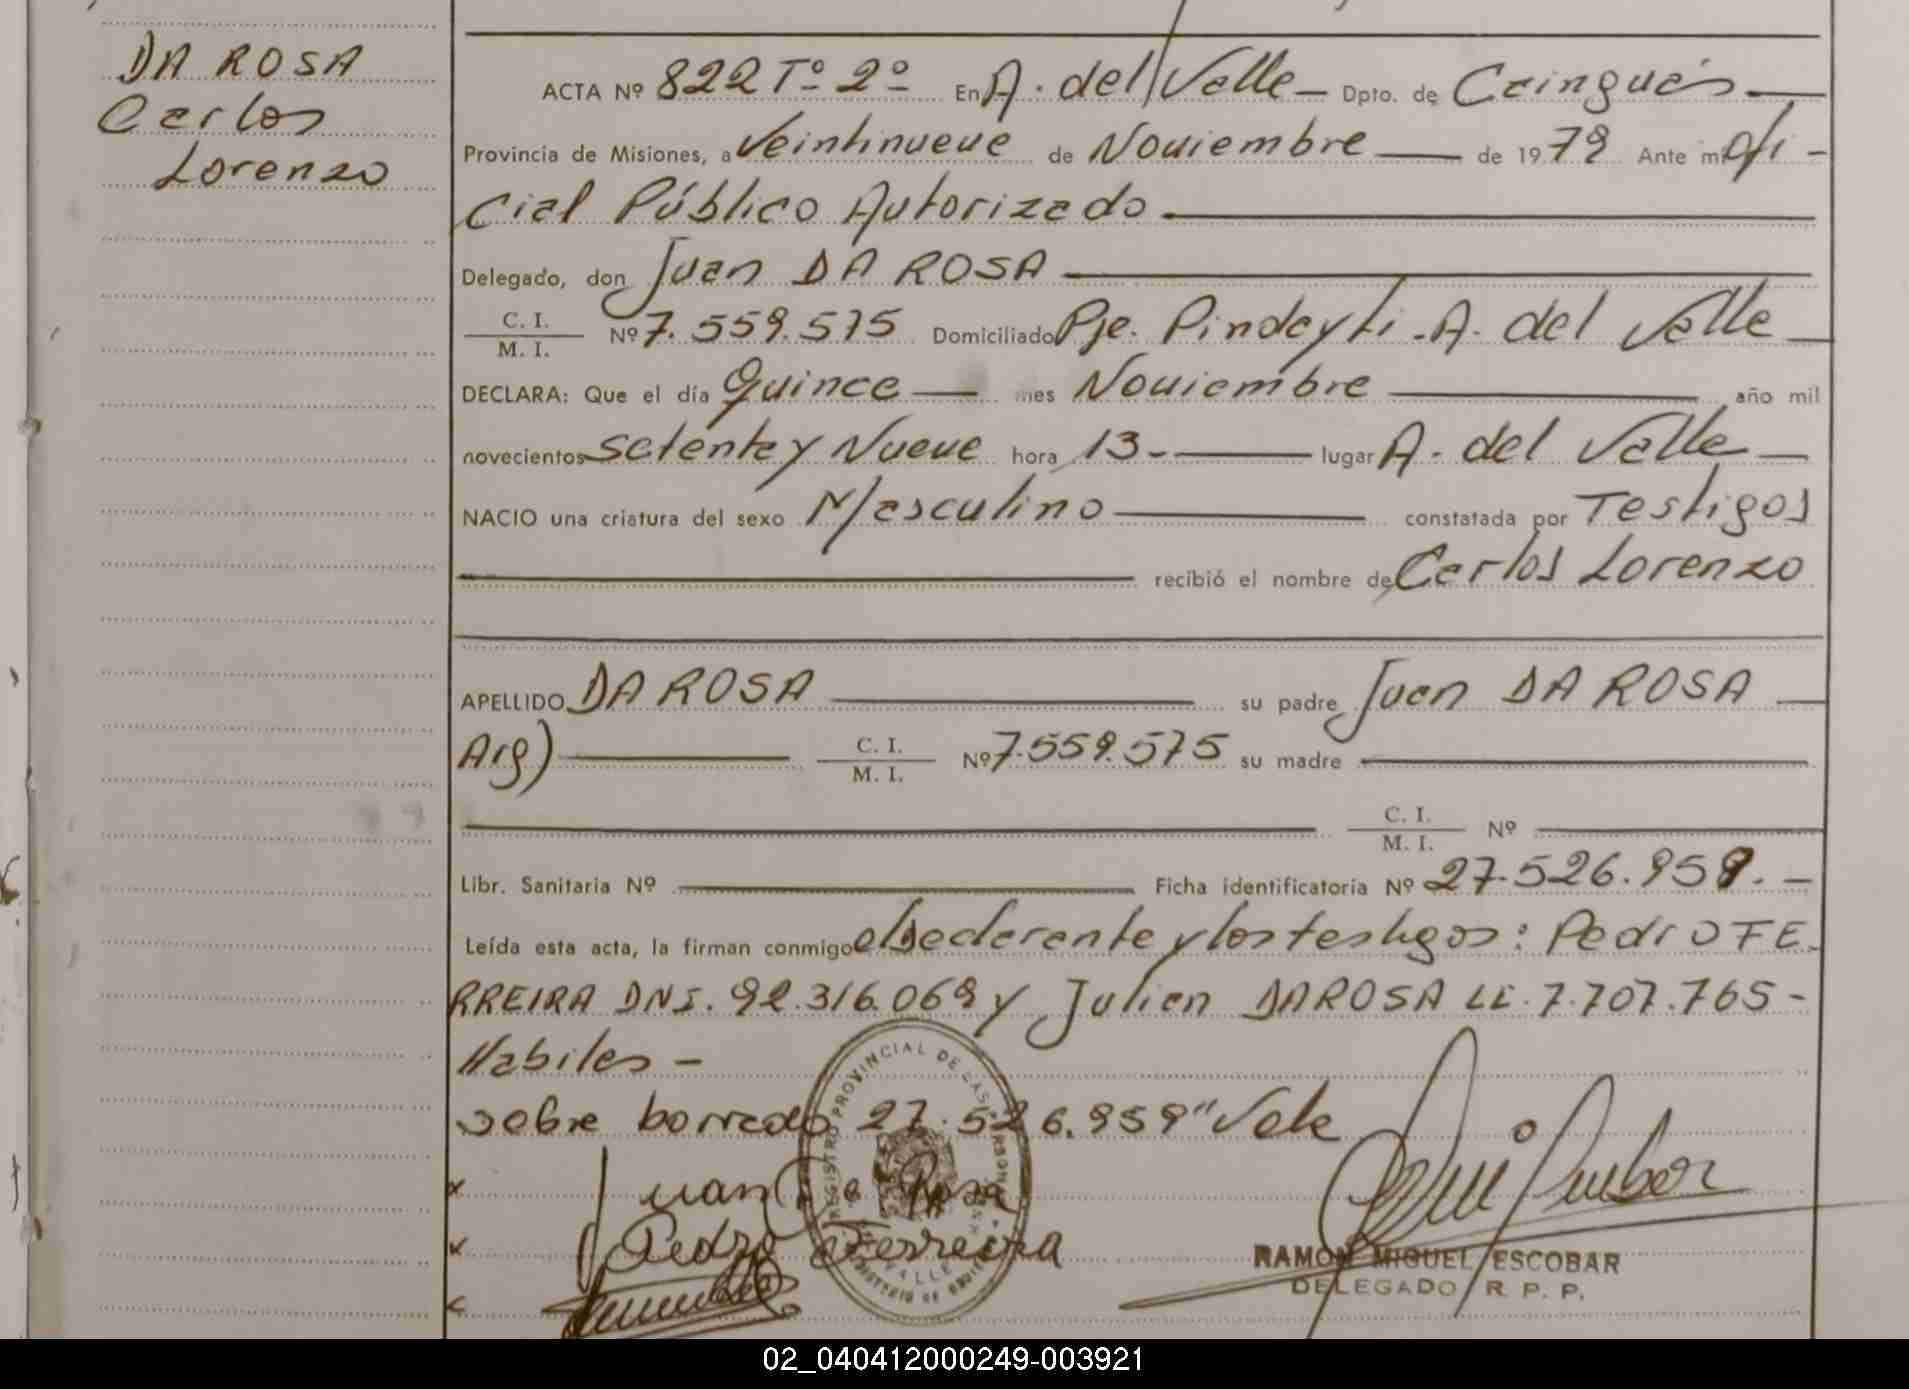 DA ROSA
Carlos
Lorenzo
ACTA Nº 822 Tº 2º En A. del Valle Dpto. de Cainguás
Provincia de Misiones, a Veintinueve de Noviembre de 1979 Ante mi Ofi-
cial Público Autorizado
Delegado, don Juan DA ROSA
C. I.
M. I. Nº 7.559.575 Domiciliado Pje. Pindayti - A. del Valle
DECLARA: Que el día Quince mes Noviembre año mil
novecientos setenta y Nueve hora 13- lugar A. del Valle
NACIO una criatura del sexo Masculino constatada por Testigos
recibió el nombre de Carlos Lorenzo
APELLIDO DA ROSA su padre Juan DA ROSA
Arg) C. I.
M. I. Nº 7.559.575 su madre
C. I.
M. I. Nº
Libr. Sanitaria Nº Ficha identificatoria Nº 27.526.959.-
Leída esta acta, la firman conmigo el declarante y los testigos: Pedro FE
RREIRA DNI. 92.316.069 y Julian DA ROSA LE. 7.707.765-
Habiles -
sobre borrado 27.526.959" Vale
REGISTRO PROVINCIAL DE LAS PERSONAS
x Juan Da Rosa
x Pedro Ferreira
x
RAMÓN MIGUEL ESCOBAR
DELEGADO R. P. P.
02_040412000249-003921